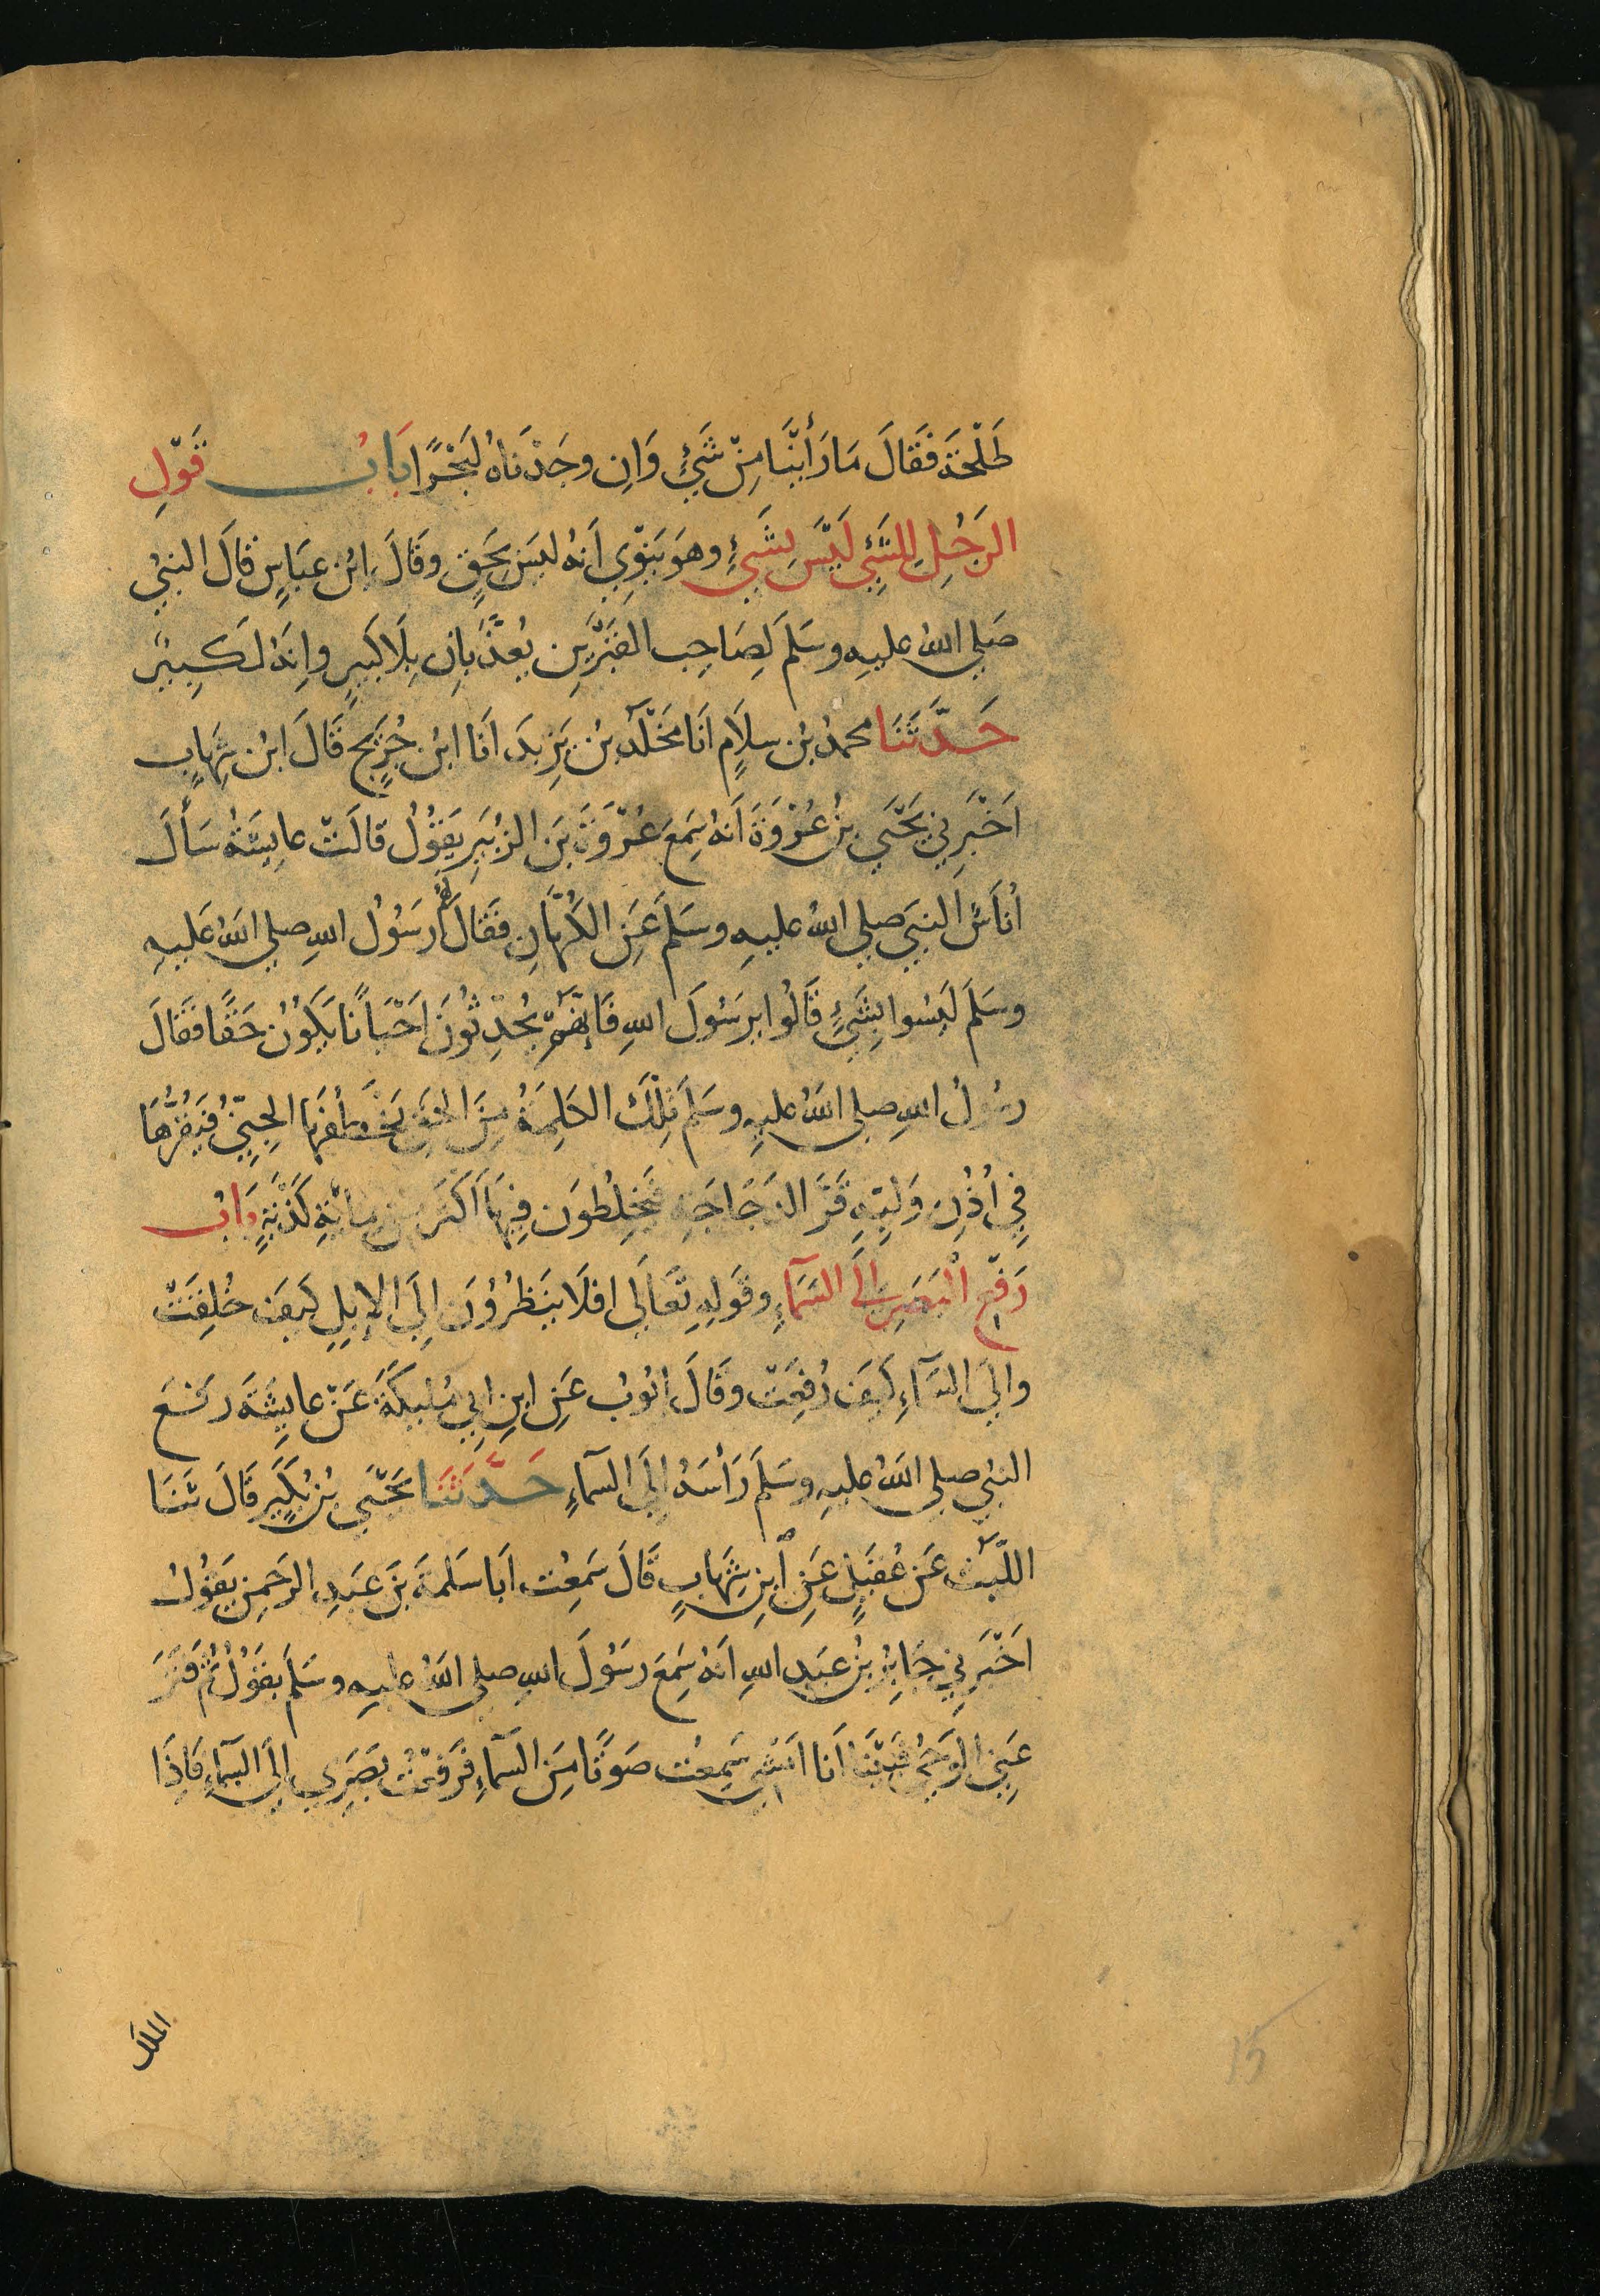 طَلْحَةَ فَقَالَ مَا رَأَيْنَا مِنْ شَيْءٍ وَاِن وجَدْنَاهُ لَبَحْرًا بَابُ قَوْلِ
الرَجُلِ لِلشَيْءِ لَيْسَ بِشَيْءٍ وهوَ يَنْوِي اَنهُ ليسَ بِحَقٍ وقَالَ ابْن عبَاسٍ قَالَ النبيُ
صَلي اللهُ عليهِ وسَلمَ لِصَاحِب القَبْرَيْنِ يُعذَّبَانِ بِلَا كَبيرٍ وانِهُ لَكَبِيرٌ
حَدَّثَنَا محمدُ بْن سلاَم اَنَا مَخْلَد بْن يَزِيدَ اَنَا ابْن جُرَيْجٍ قَالَ ابْن شِهَابٍ
اَخْبَرنِي يَحْيَي بْنُ عُرْوَةَ اَنهُ سَمِعَ عُرْوَةَ بْنَ الزبَيرِ يَقُوْلُ قَالَتْ عايِشَةُ سَأَلَ
اُنَاسٌ النبيَ صلي اللهُ عليهِ وسَلمَ عَنِ الكُهَّانِ فَقَالَ لَهُمْ رَسُوْلُ اللهِ صلي اللهُ عَليهِ
وسَلمَ لَيْسُوا بِشَيْءٍ قَالُوا يرَسُوْلَ اللهِ فَاِنَّهُمْ يُحَدِثُوْنَ اَحْيَانًا يَكُوْنُ حَقًا فَقَالَ
رسُوْلُ اللهِ صلي اللهُ عليهِ وسَلمَ تِلْكَ الكَلِمَةُ مِنَ الحَقِ يَخْطَفُهَا الجِنِيّ فَيَقُرُّهَا
فِي اُذُنِ وَلِيِّهِ قَرَّ الدَجَاجَةِ فَيَخْلِطُوَن فِيهَا اَكثَر مِن مِائَةِ كَذْبَةٍ بَابُ
رَفْعِ الْبَصَرِ الَي السَمَآءِ وقَولِهِ تعَالَي افَلَا يَنْظُرُوْنَ اِلَي الاِبِلِ كَيفَ خُلِقَتْ
والِيَ السَمآءِ كَيفَ رُفِعَتْ وقَالَ ايُوبُ عَنِ ابنِ ابِي مُلَيكَةَ عَنْ عايِشَةَ رفَعَ
النبي صلي اللهُ عليهِ وسَلمَ رَأْسَهُ اِلَي السمآءِ حَدَّثَنَا يَحْيَي بْنُ بُكَيْرٍ قَالَ ثَنَا
اللَيْث عَن عُقَيْلٍ عَنِ ابنِ شِهَابٍ قَالَ سَمِعْت اَبَا سَلمةَ بْنَ عَبدِ الرحَمن يَقُوْلُ
اَخْبَرَنِي جَابِرُ بْنُ عَبدِ اللهِ انهُ سَمِعَ رسُوْلَ اللهِ صلي اللهُ عليهِ وسَلمَ يقُوْلُ ثُم فَتَرَ
عَنِي الوَحْيُ فَبَيْنَا اَنَا اَمْشِي سَمِعْت صَوتًا مِنَ السمآءِ فَرَفعْتُ بصَرِي اِلَي السَمآءِ فَاِذَا
الملك
15